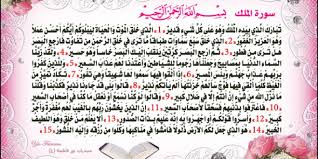 سورة الملك بسم الله الرحمن الرحيم
تبارك الذي بيده الملك وهو على كل شيء قدير .1 الذي خلق الموت والحياة ليبلوكم أيكم أحسن عملا
وهو العزيز الغفور .2 الذي خلق سبع سماوات طباقا ما ترى في خلق الرحمن من تفاوت فارجع البصر
هل ترى من فطور .3 ثم ارجع البصر كرتين ينقلب إليك البصر خاسئا وهو حسير .4 ولقد زينا
السماء الدنيا بمصابيح وجعلناها رجوما للشياطين وأعتدنا لهم عذاب السعير .5 وللذين كفروا
بربهم عذاب جهنم وبئس المصير .6 إذا ألقوا فيها سمعوا لها شهيقا وهي تفور .7 تكاد تميز
من الغيظ كلما ألقي فيها فوج سألهم خزنتها ألم يأتكم نذير .8 قالوا بلى قد جاءنا نذير فكذبنا وقلنا ما
نزل الله من شيء إن أنتم إلا في ضلال كبير .9 وقالوا لو كنا نسمع أو نعقل ما كنا في أصحاب السعير
.10 فاعترفوا بذنبهم فسحقا لأصحاب السعير .11 إن الذين يخشون ربهم بالغيب لهم مغفرة وأجر كبير
.12 وأسروا قولكم أو اجهروا به إنه عليم بذات الصدور .13 ألا يعلم من خلق وهو اللطيف الخبير
.14 هو الذي جعل لكم الأرض ذلولا فامشوا في مناكبها وكلوا من رزقه وإليه النشور .15